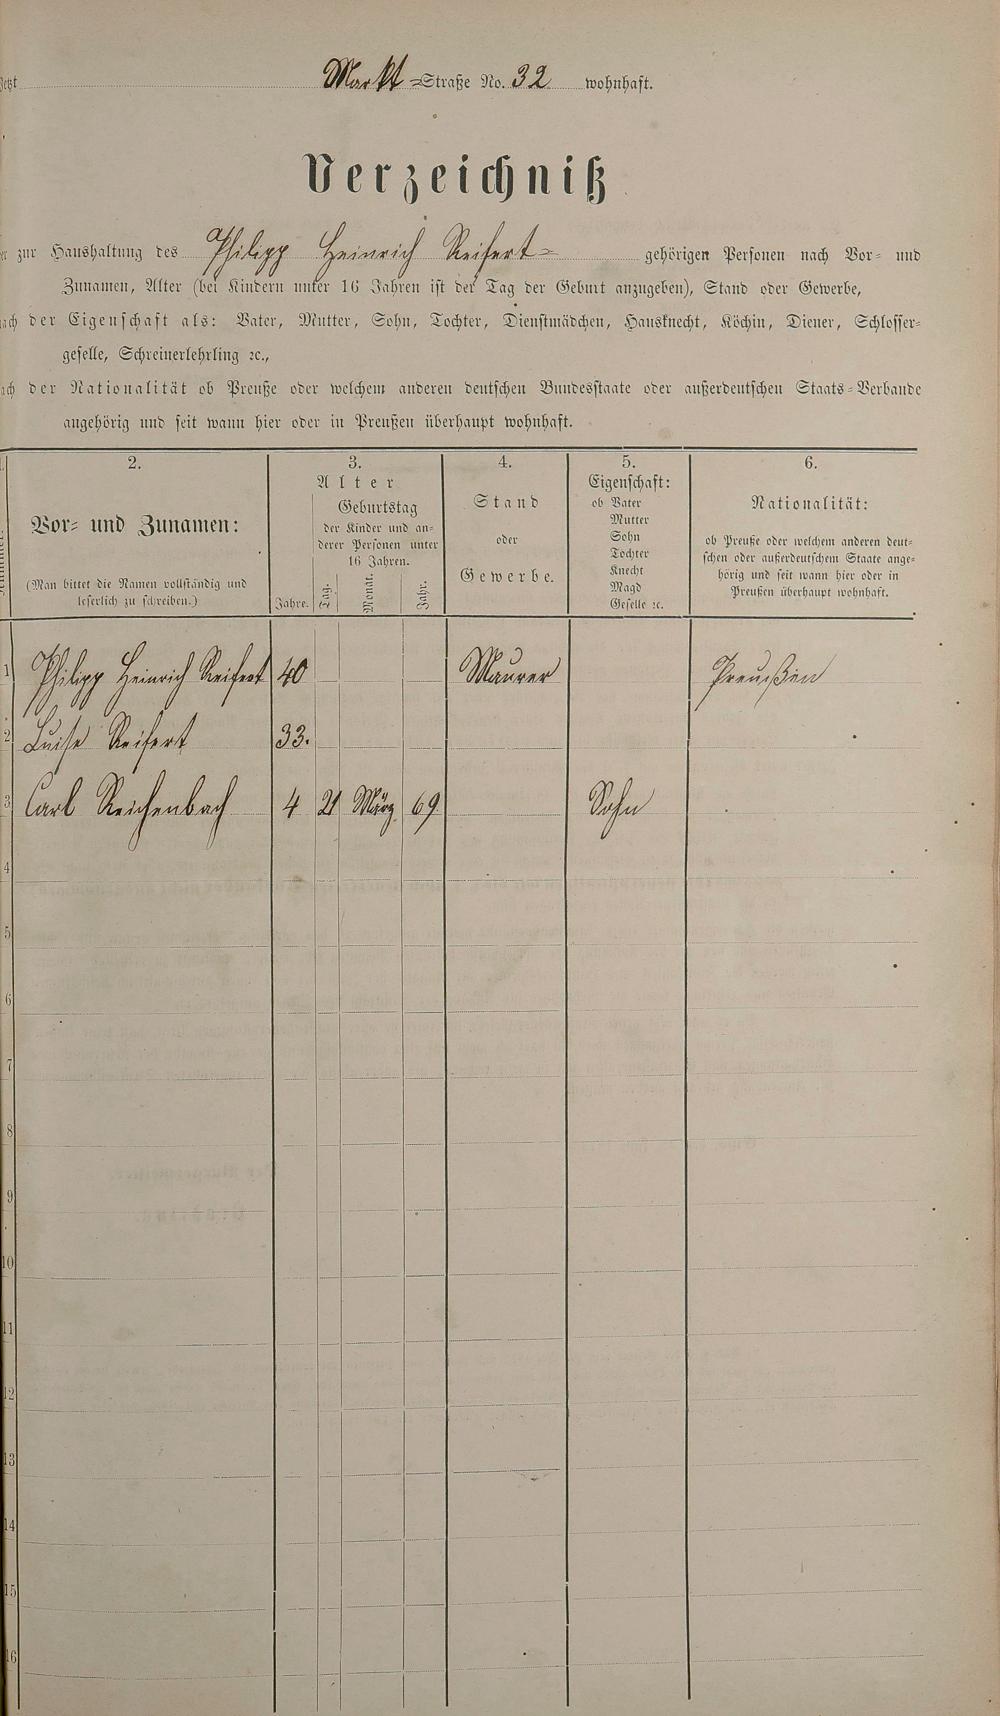 Jetzt Markt-Straße No. 32 wohnhaft.
Verzeichniß
der zur Haushaltung des Philipp Heinrich Reifert gehörigen Personen nach Vor- und
Zunamen, Alter (bei Kindern unter 16 Jahren ist der Tag der Geburt anzugeben), Stand oder Gewerbe,
nach der Eigenschaft als: Vater, Mutter, Sohn, Tochter, Dienstmädchen, Hausknecht, Köchin, Diener, Schlosser-
geselle, Schreinerlehrling ꝛc.,
nach der Nationalität ob Preuße oder welchem anderen deutschen Bundesstaate oder außerdeutschen Staats-Verbande
angehörig und seit wann hier oder in Preußen überhaupt wohnhaft.
2.
Vor- und Zunamen:
(Man bittet die Namen vollständig und
leserlich zu schreiben.)
3.
Alter
Jahre.
Geburtstag
der Kinder und an-
derer Personen unter
16 Jahren.
Tag.
Monat.
Jahr.
4.
Stand
oder
Gewerbe.
5.
Eigenschaft:
ob Vater
Mutter
Sohn
Tochter
Knecht
Magd
Geselle ꝛc.
6.
Nationalität:
ob Preuße oder welchem anderen deut-
schen oder außerdeutschem Staate ange-
hörig und seit wann hier oder in
Preußen überhaupt wohnhaft.
1 Philipp Heinrich Reifert 40 Maurer Preußen
2 Luise Reifert 33.
3 Carl Reichenbach 4 21 März 69 Sohn
4
5
6
7
8
9
10
11
12
13
14
15
16